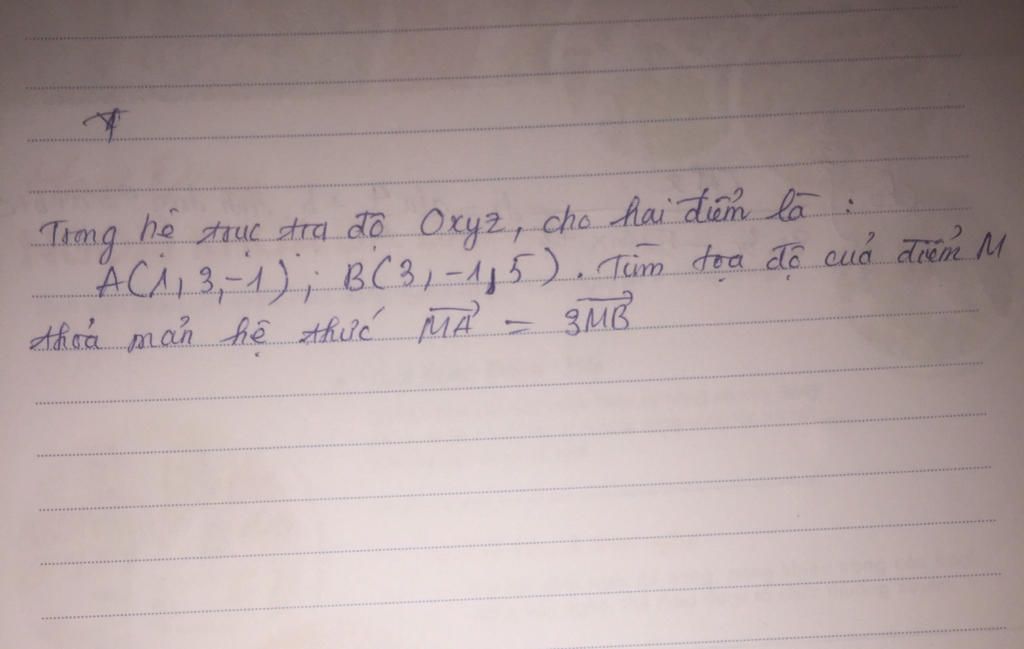 Trong hệ trục tra độ Oxyz, cho hai điểm là :
A(1, 3,-1) ; B(3, -1, 5) . Tìm tọa độ cuả điểm M
thoả mản hệ thức \overrightarrow{MA} = 3\overrightarrow{MB}